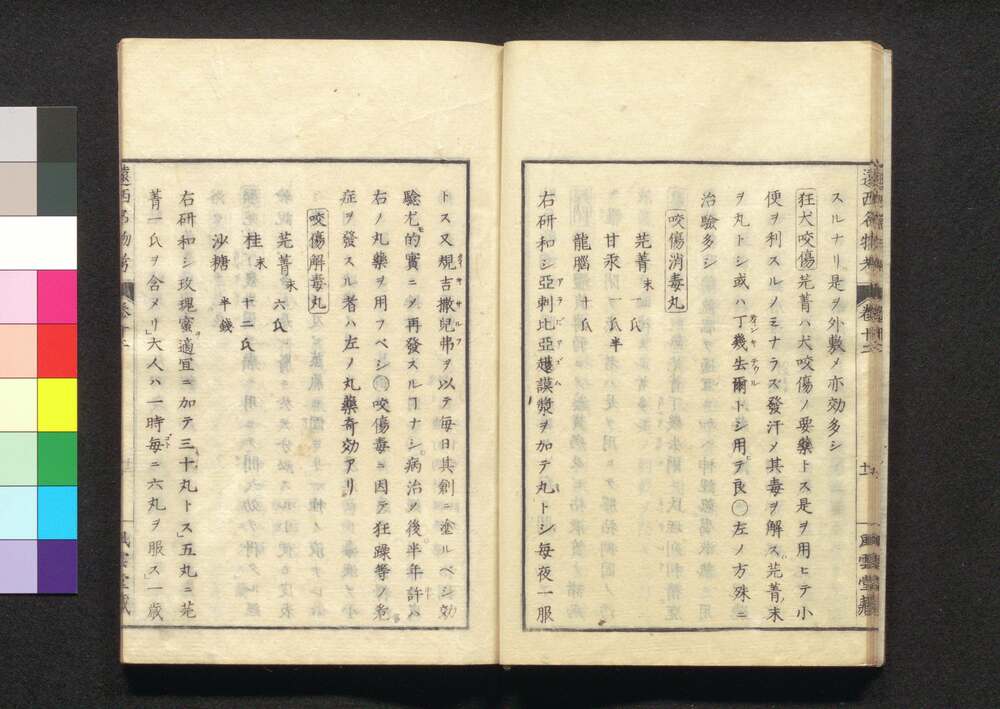 スルナリ是ヲ外敷メ亦効多シ
狂犬咬傷 芫菁ハ犬咬傷ノ要藥トス是ヲ用ヒテ小
便ヲ利スルノミナラズ發汗メ其毒ヲ解ス芫菁末
ヲ丸トシ或ハ丁幾去爾トシ用テ良〇左ノ方殊ニ
治驗多シ
咬傷消毒丸
芫菁末 一氏
甘汞 一氏半
龍腦 十氏
右研和シ亞剌比亞護謨漿ヲ加テ丸トシ毎夜一服
トス又規吉撒兒弗ヲ以テ毎日其創ニ塗ルベシ効
驗尤的實ニメ再發スルヿナシ病治メ後半年許ハ
右ノ丸藥ヲ用フベシ〇咬傷毒ニ因テ狂躁等ノ危
症ヲ發スル者ハ左ノ丸藥奇効アリ
咬傷解毒丸
芫菁末 六氏
桂末 十二氏
沙糖 半錢
右研和シ玫瑰蜜適宜ニ加テ三十丸トス」五丸ニ芫
菁一氏ヲ含メリ」大人ハ一時毎ニ六丸ヲ服ス」一歲
遠西名物考 卷十二
風雲堂藏